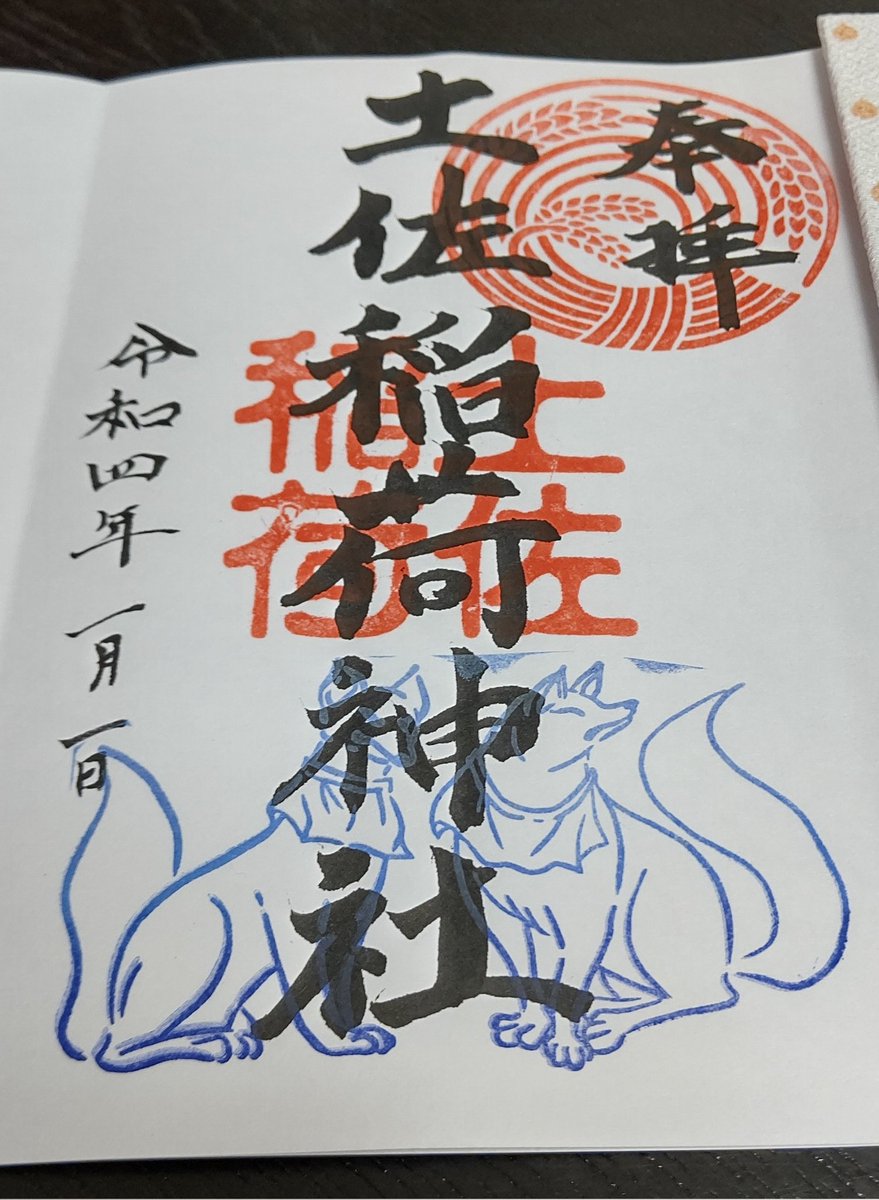 奉拝
土佐稲荷神社
土佐
稲荷
令和四年一月一日